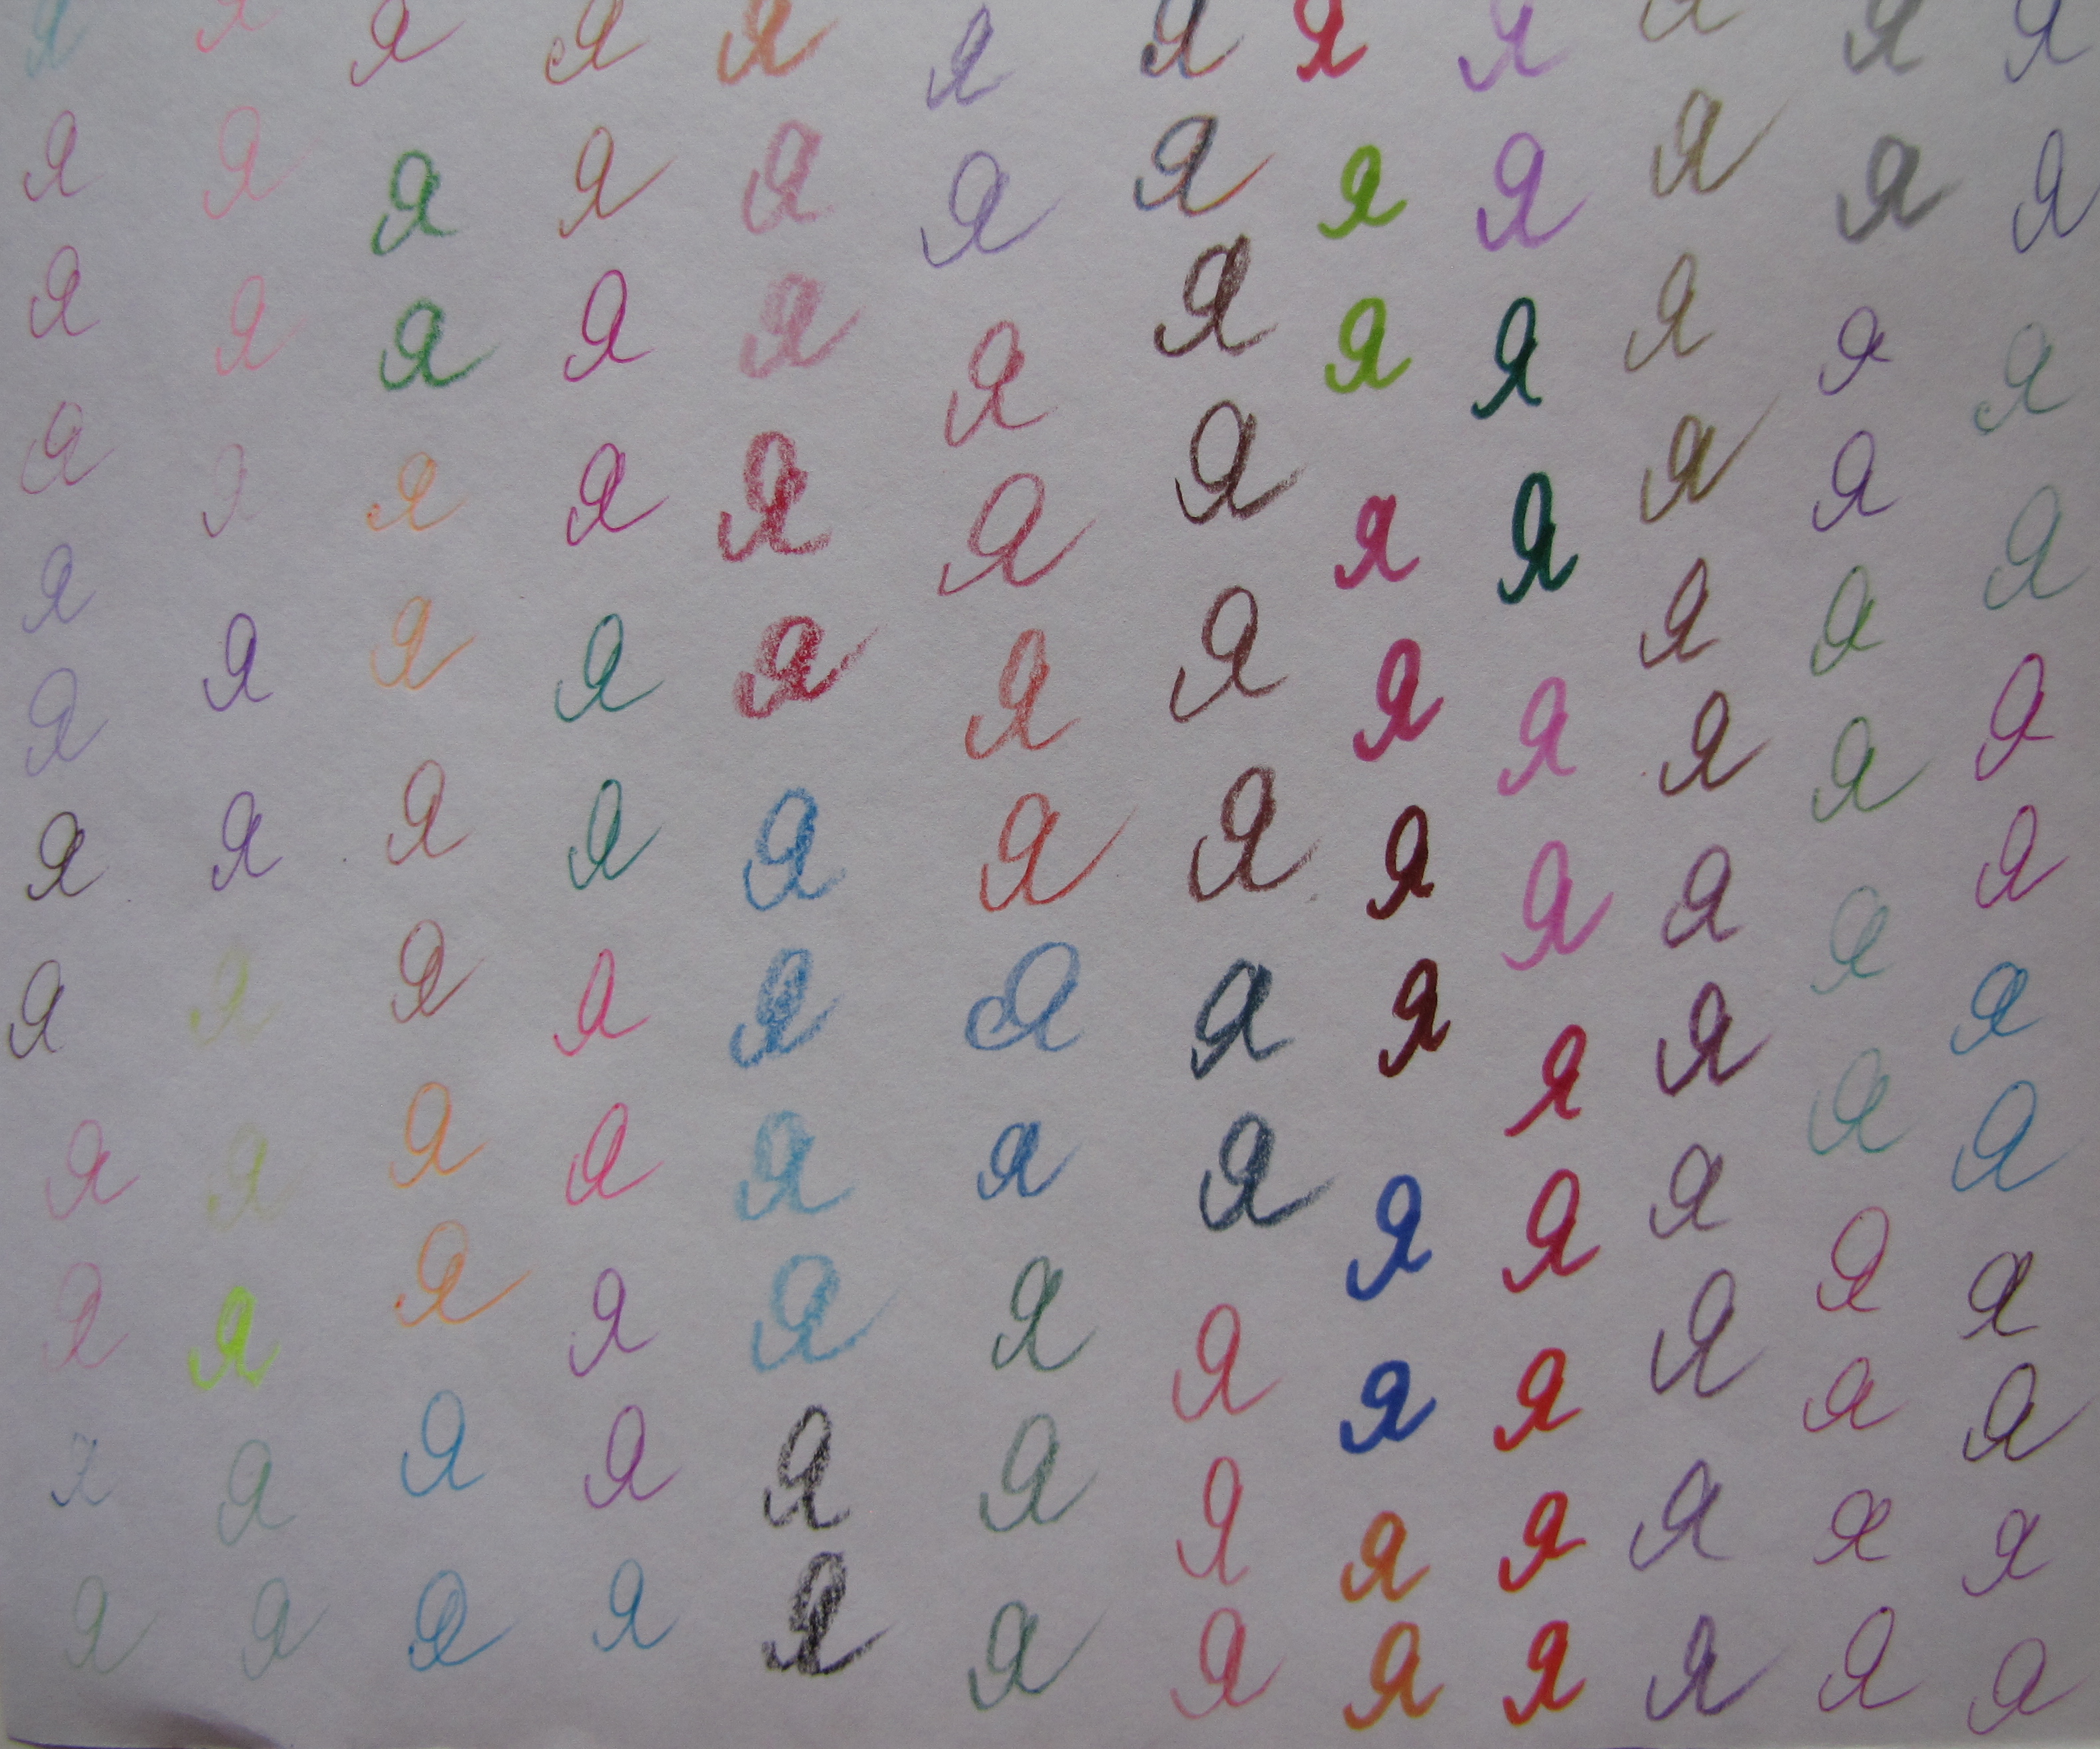 Я Я Я Я Я Я Я Я Я Я Я Я
Я Я Я Я Я Я Я Я Я Я Я Я
Я Я Я Я Я Я Я Я Я Я Я Я
Я Я Я Я Я Я Я Я Я Я Я Я
Я Я Я Я Я Я Я Я Я Я Я Я
Я Я Я Я Я Я Я Я Я Я Я Я
Я Я Я Я Я Я Я Я Я Я Я Я
Я Я Я Я Я Я Я Я Я Я Я Я
Я Я Я Я Я Я Я Я Я Я Я Я
Я Я Я Я Я Я Я Я Я Я Я Я
Я Я Я Я
Я Я Я Я Я Я Я Я Я Я Я Я